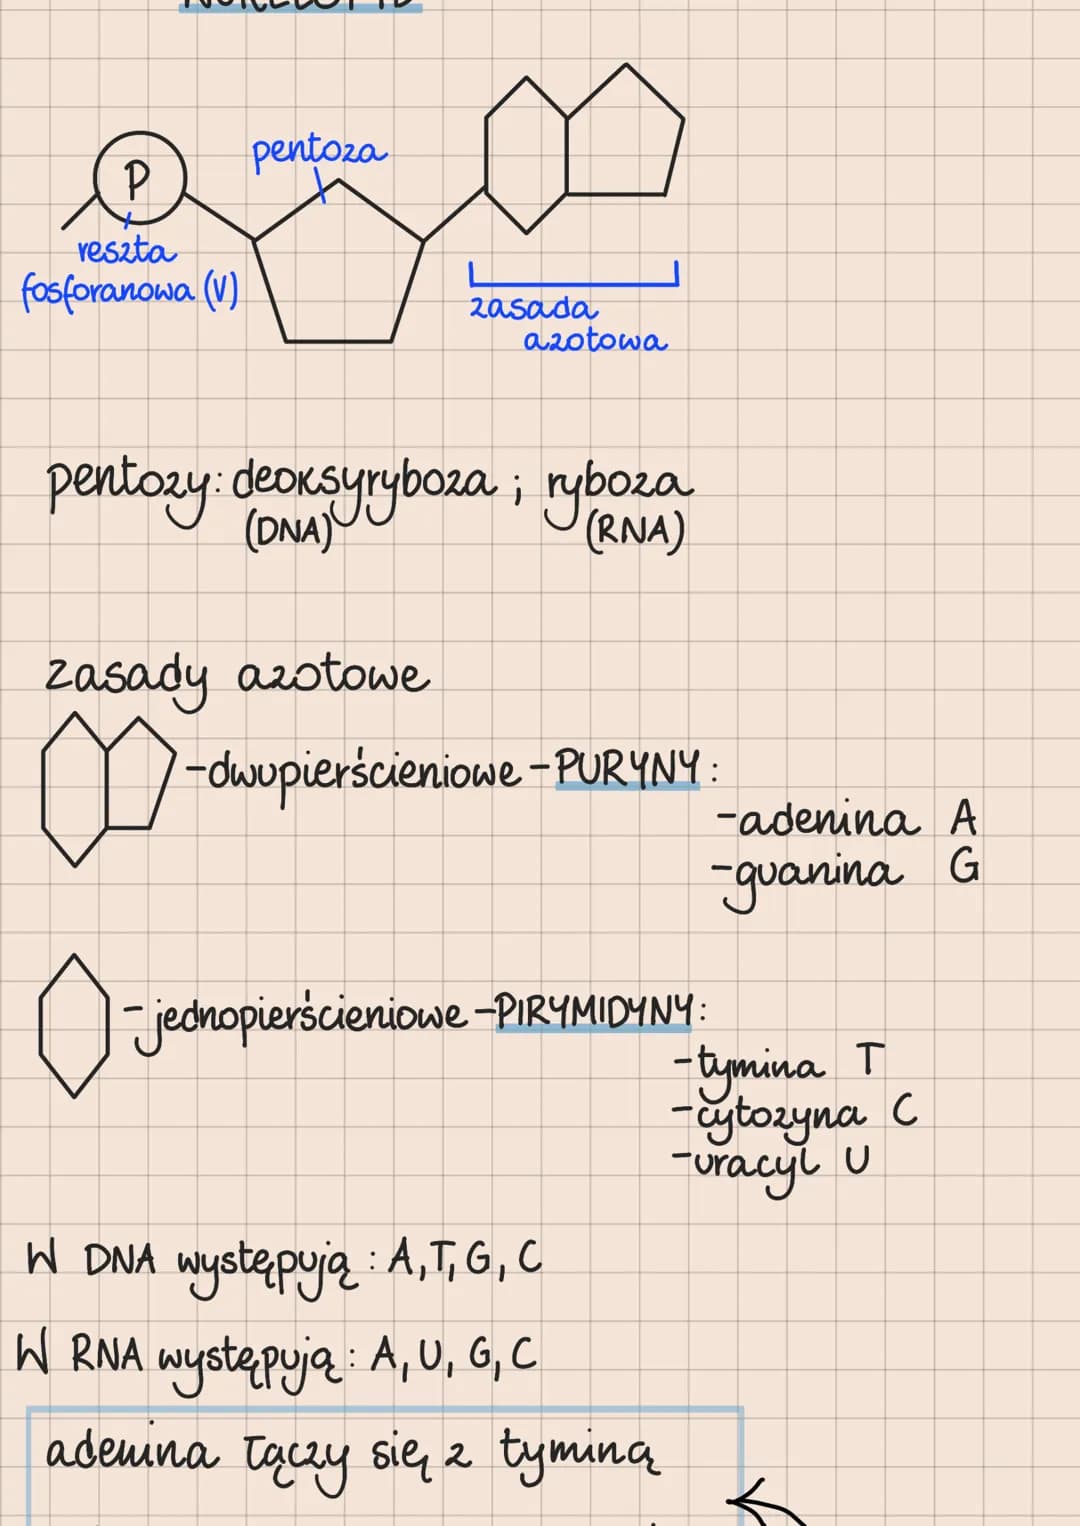 NUKLEOTYD
P
pentoza
reszta
fosforanowa (V)
zasada
azotowa
pentozy: deoksyryboza ; ryboza
(DNA) (RNA)
zasady azotowe
-dwupierścieniowe - PURYNY:
-adenina A
-guanina G
-jednopierścieniowe - PIRYMIDYNY:
-tymina T
-cytozyna C
-uracyl U
W DNA występują: A, T, G, C
W RNA występują: A, U, G, C
adenina łączy się z tyminą